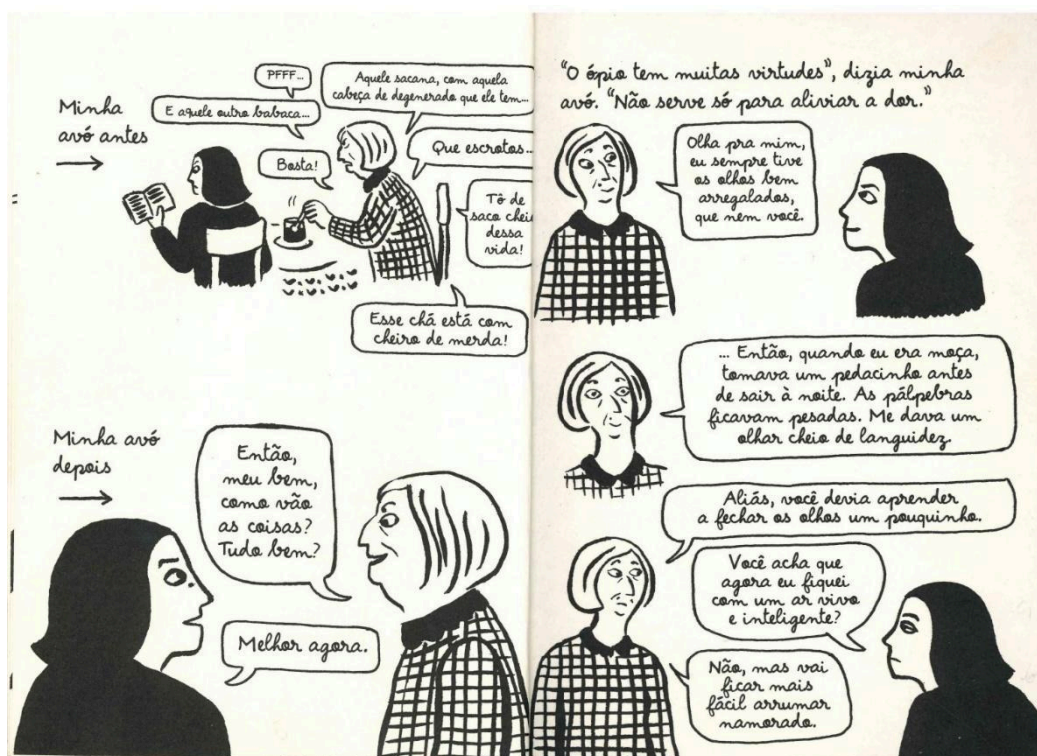 Minha
avó antes
PFFF...
E aquele outro babaca...
Aquele sacana, com aquela
cabeça de degenerado que ele tem...
Bosta!
Que escrotos...
Tô de
saco chei
dessa
vida!
Esse chá está com
cheiro de merda!
Minha avó
depois
Então,
meu bem,
como vão
as coisas?
Tudo bem?
Melhor agora.
“O ópio tem muitas virtudes”, dizia minha
avó. “Não serve só para aliviar a dor.”
Olha pra mim,
eu sempre tive
os olhos bem
arregalados,
que nem você.
... Então, quando eu era moça,
tomava um pedacinho antes
de sair à noite. As pálpebras
ficavam pesadas. Me dava um
olhar cheio de languidez.
Aliás, você devia aprender
a fechar os olhos um pouquinho.
Você acha que
agora eu fiquei
com um ar vivo
e inteligente?
Não, mas vai
ficar mais
fácil arrumar
namorado.